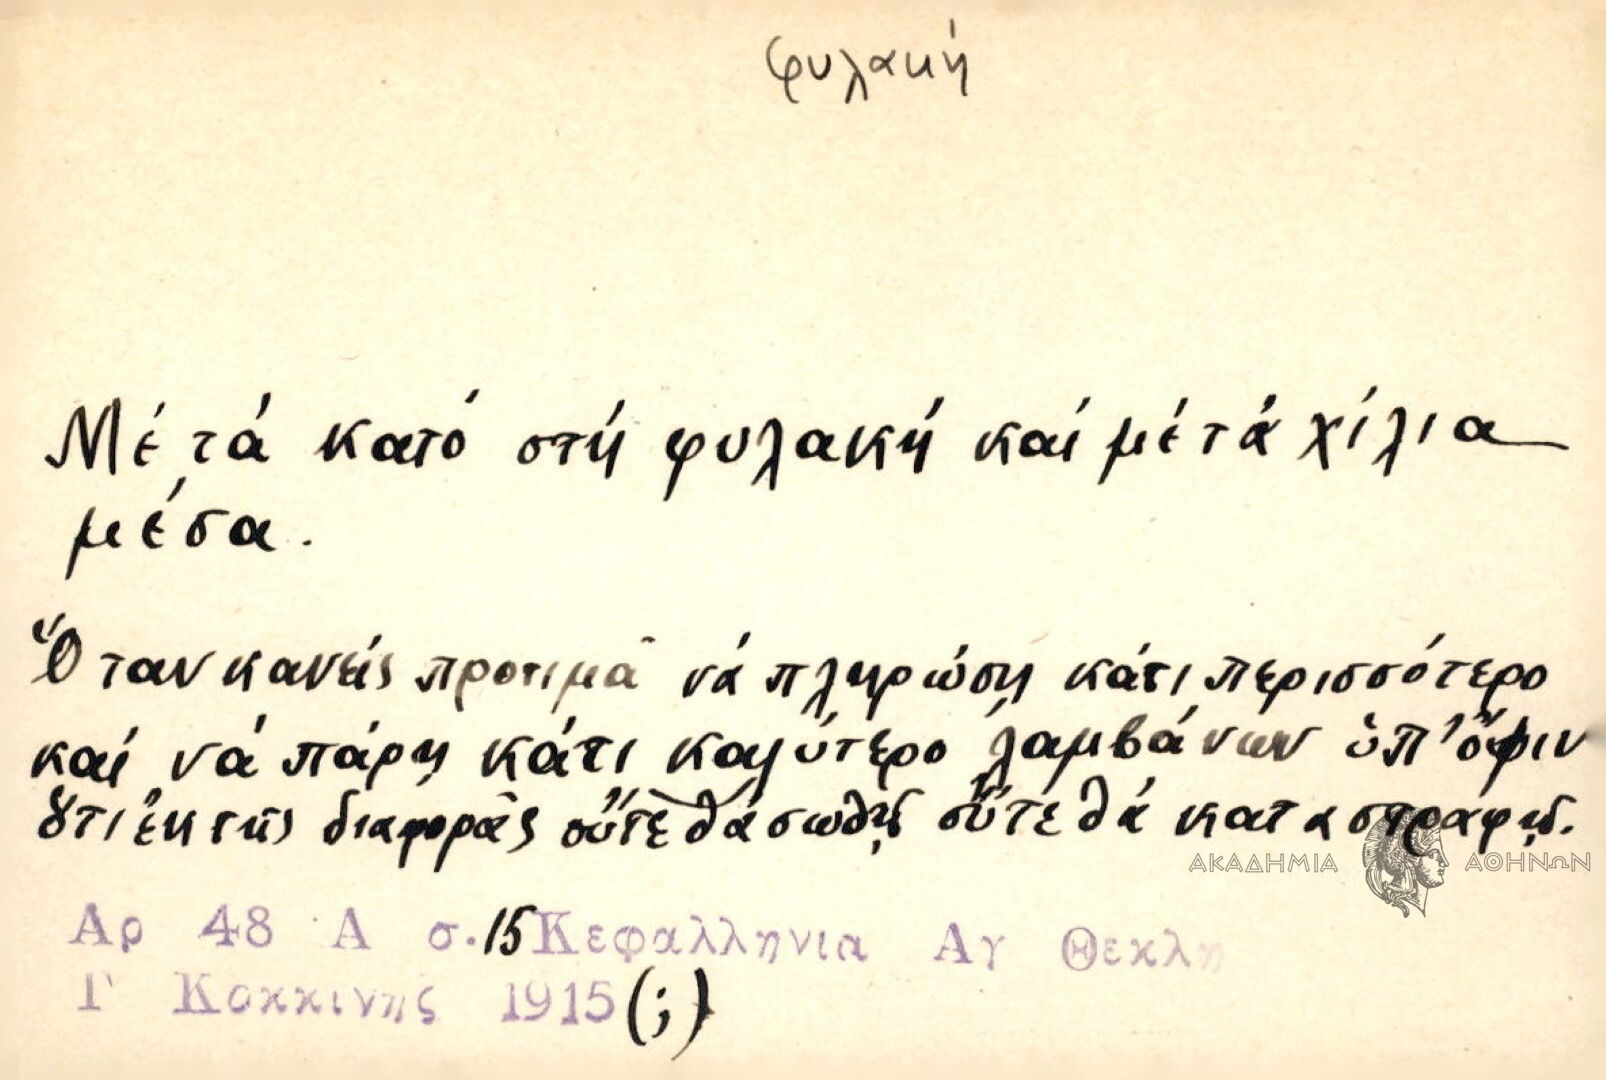 φυλακή
Μέ τά κατό στή φυλακή καί μέ τά χίλια
μέσα.
Ὅταν κανείς προτιμᾶ νά πληρώση κάτι περισσότερο
καί νά πάρη κάτι καλύτερο λαμβάνων ὑπ' ὄψιν
ὅτι ἐκ τῆς διαφορᾶς οὔτε θά σωθῇ οὔτε θά καταστραφῇ.
ΑΚΑΔΗΜΙΑ ΑΘΗΝΩΝ
Αρ 48 Α σ. 15 Κεφαλληνια Αγ Θεκλη
Γ Κοκκινης 1915 (;)